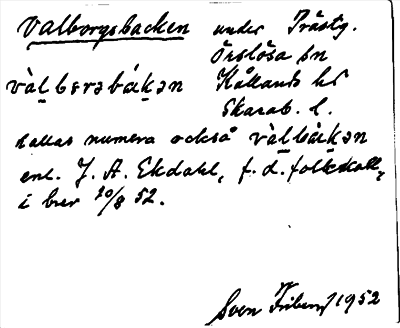 Valborgsbacken under Prästg.
Örslösa sn
vàl̠bɛrəbák̠ən Kållands hd
Skarab. l.
kallas numera också vàl̠bàk̠ən
enl. J. A. Ekdahl, f. d. folkskoll.,
i brev 20/8 52.
Sven Friberg 1952